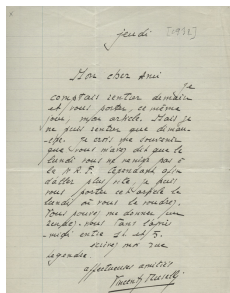 jeudi [1932]
Mon cher Ami
Je
comptais rentrer demain
et vous porter, ce même
jour, mon article. Mais je
ne puis rentrer que diman-
che. Je crois me souvenir
que vous m'avez dit que le
lundi vous ne veniez pas à
la N.R.F. Cependant afin
d'aller plus vite, je puis
vous porter cet article le
lundi où vous le voudrez.
Vous pouvez me donner un
rendez-vous dans l'après
-midi entre 2h et 5.
Ecrivez moi rue
Legendre.
affectueuses amitiés
Vincent Muselli